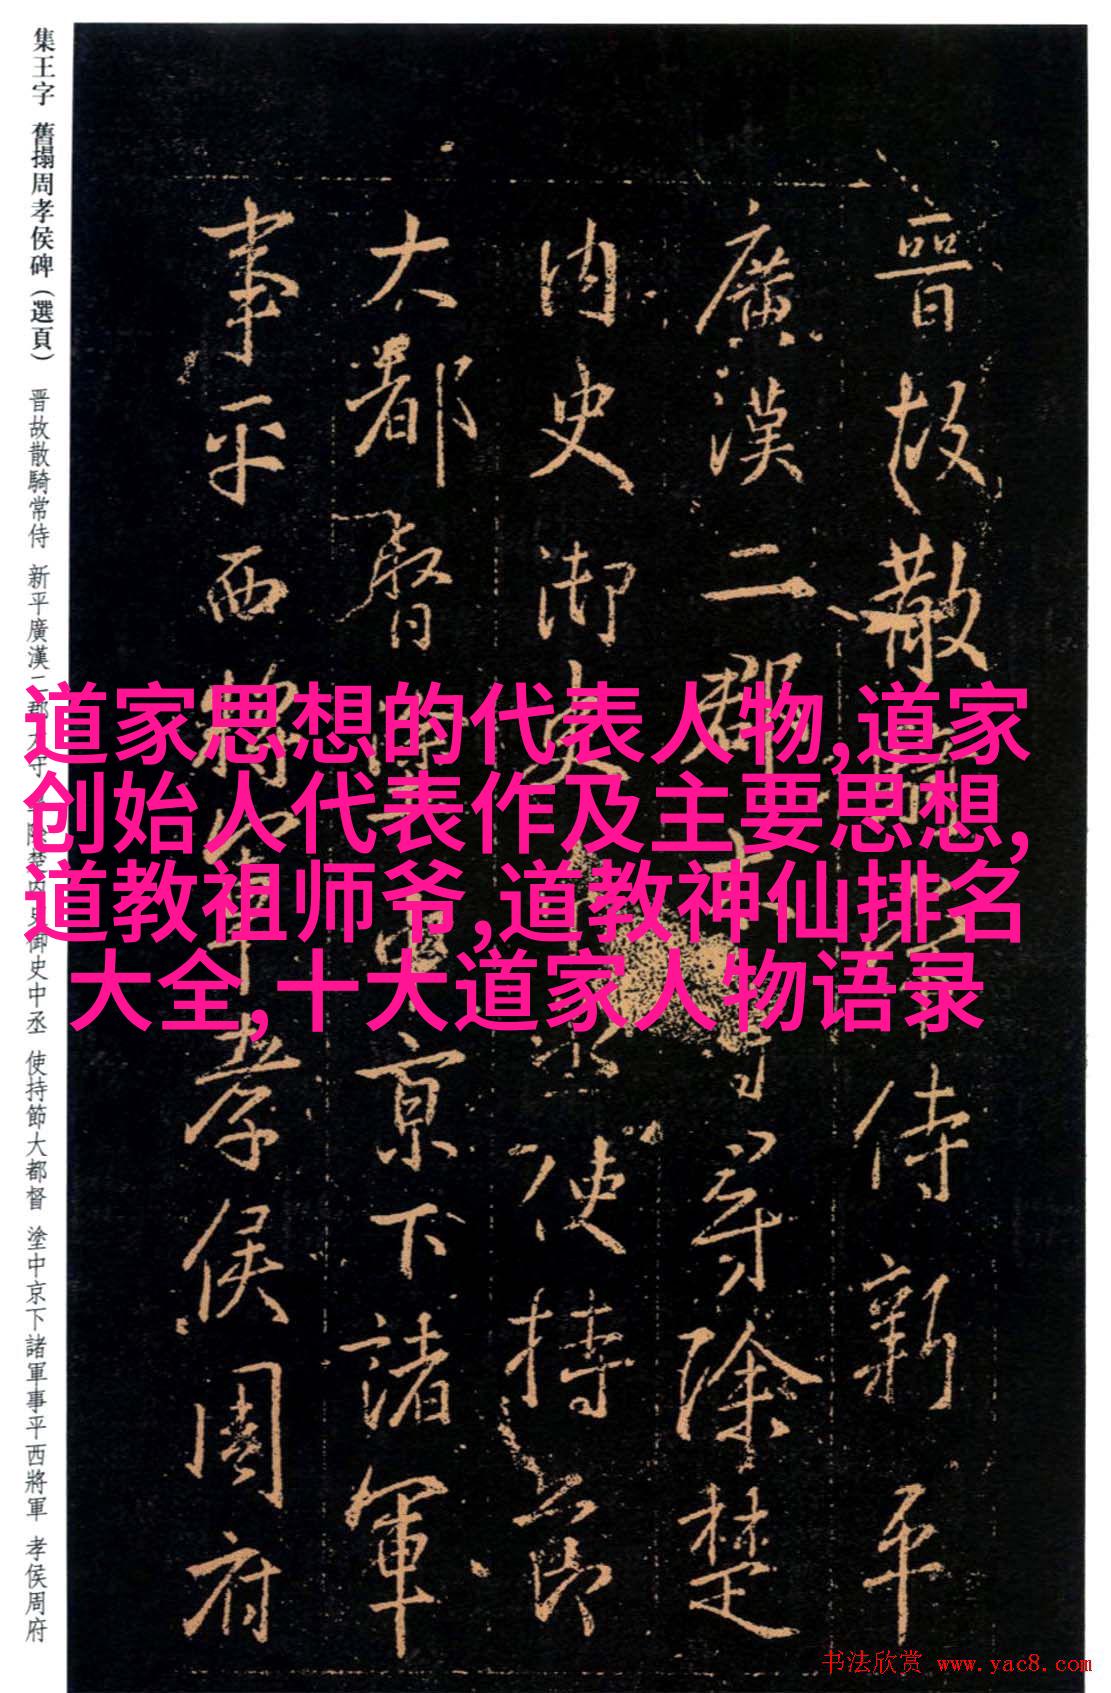 道家思想的代表人物,道家
创始人代表作及主要思想,
道教祖师爷,道教神仙排名
大全,十大道家人物语录
晉故散騎常侍新平
廣漢二郡太守尋除楚
内史御史中丞使持節
大都督塗中京下諸軍
事平西將軍孝侯周府
集王字 舊搨周孝侯碑（選頁） 晋故散騎常侍 新平廣漢二郡太守 尋除楚内史御史中丞 使持節大都督 塗中京下諸軍事平西將軍 孝侯周府
书法欣赏 www.yac8.com